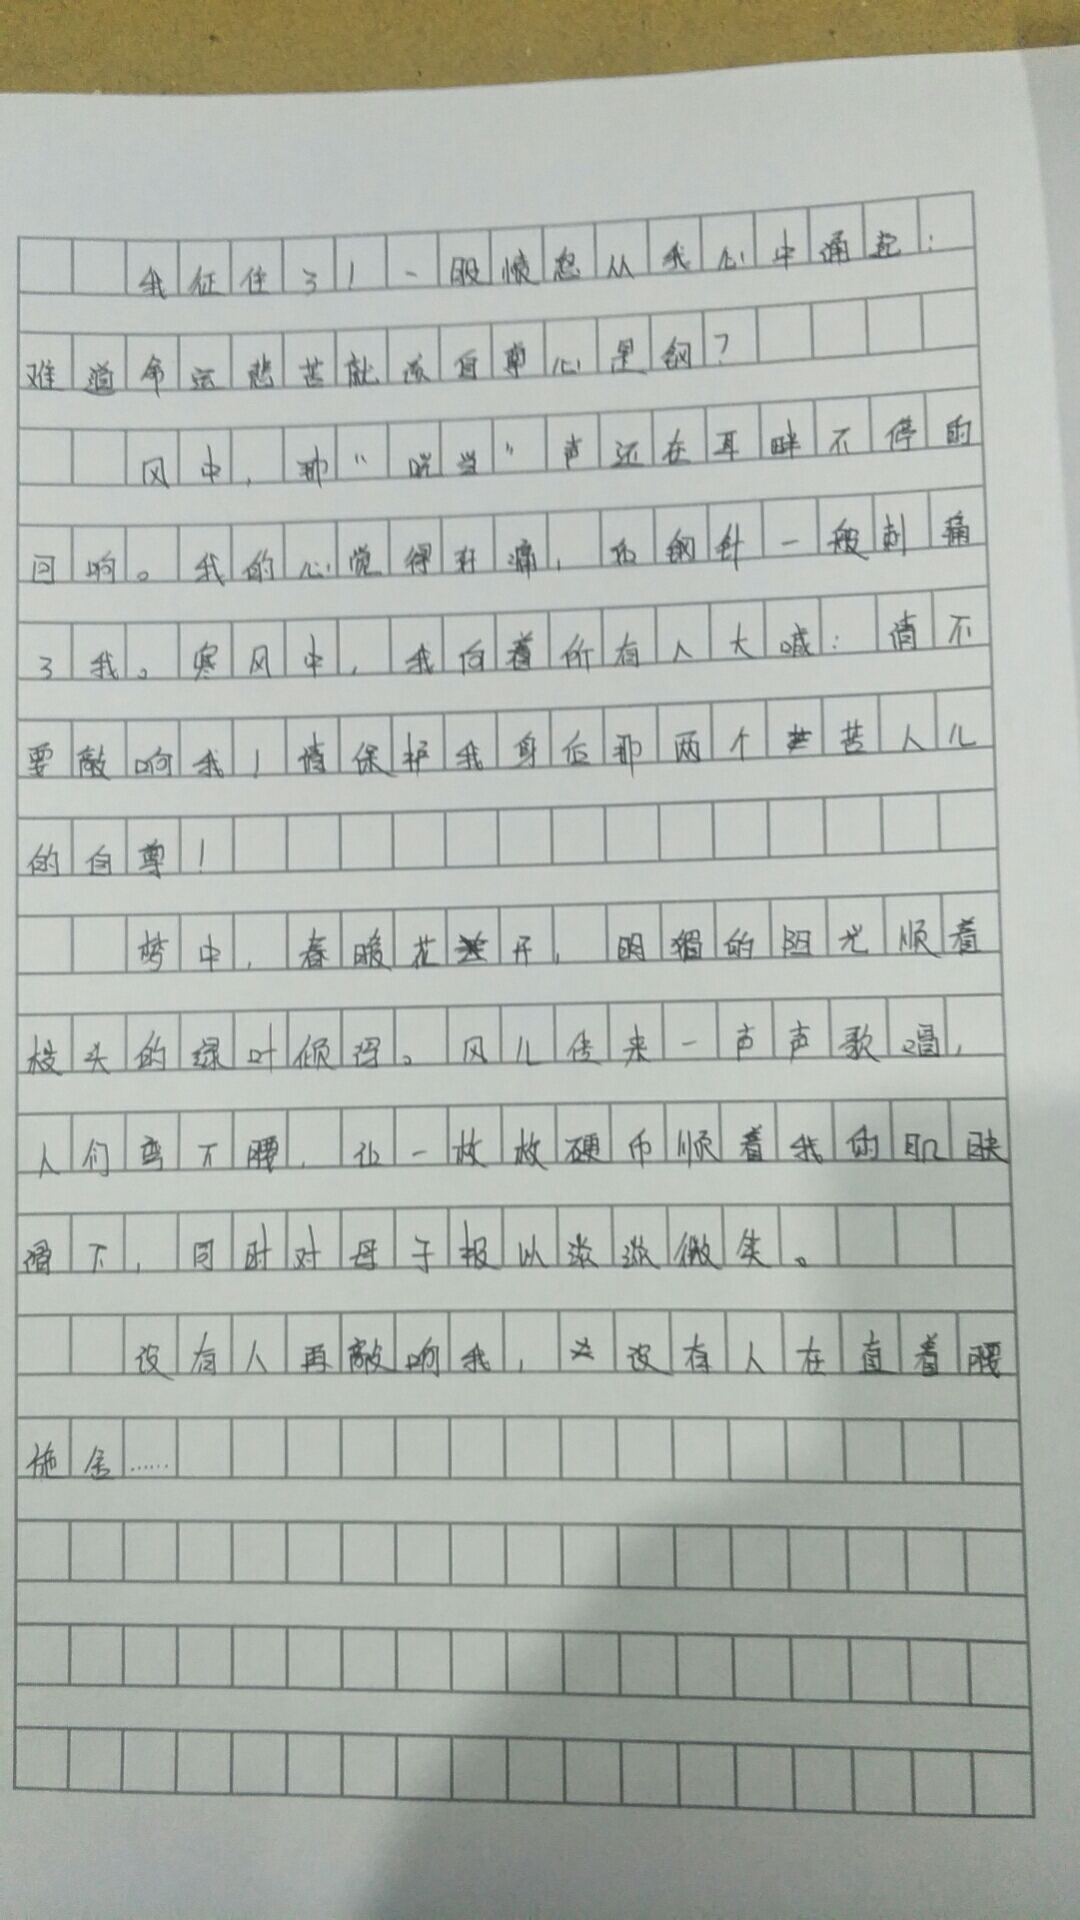 我征住了！一股愤怒从我心中涌起：
难道命运悲苦就该自尊心是钢？
风中，那“咣当”声还在耳畔不停的
回响。我的心觉得好痛，如钢针一般刺痛
了我。寒风中，我向着所有人大喊：请不
要敲响我！请保护我身后那两个苦人儿
的自尊！
梦中，春暖花开，明媚的阳光顺着
枝头的绿叶倾泻。风儿传来一声声歌唱，
人们弯下腰，让一枚枚硬币顺着我的肌肤
滑下，同时对母子报以淡淡微笑。
没有人再敲响我，没有人在直着腰
施舍……